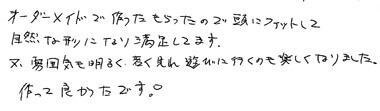 オーダーメイドで作ってもらったので頭にフィットして
自然な形になり満足してます。
又、雰囲気も明るく若く見え遊びに行くのも楽しくなりました。
作って良かったです。